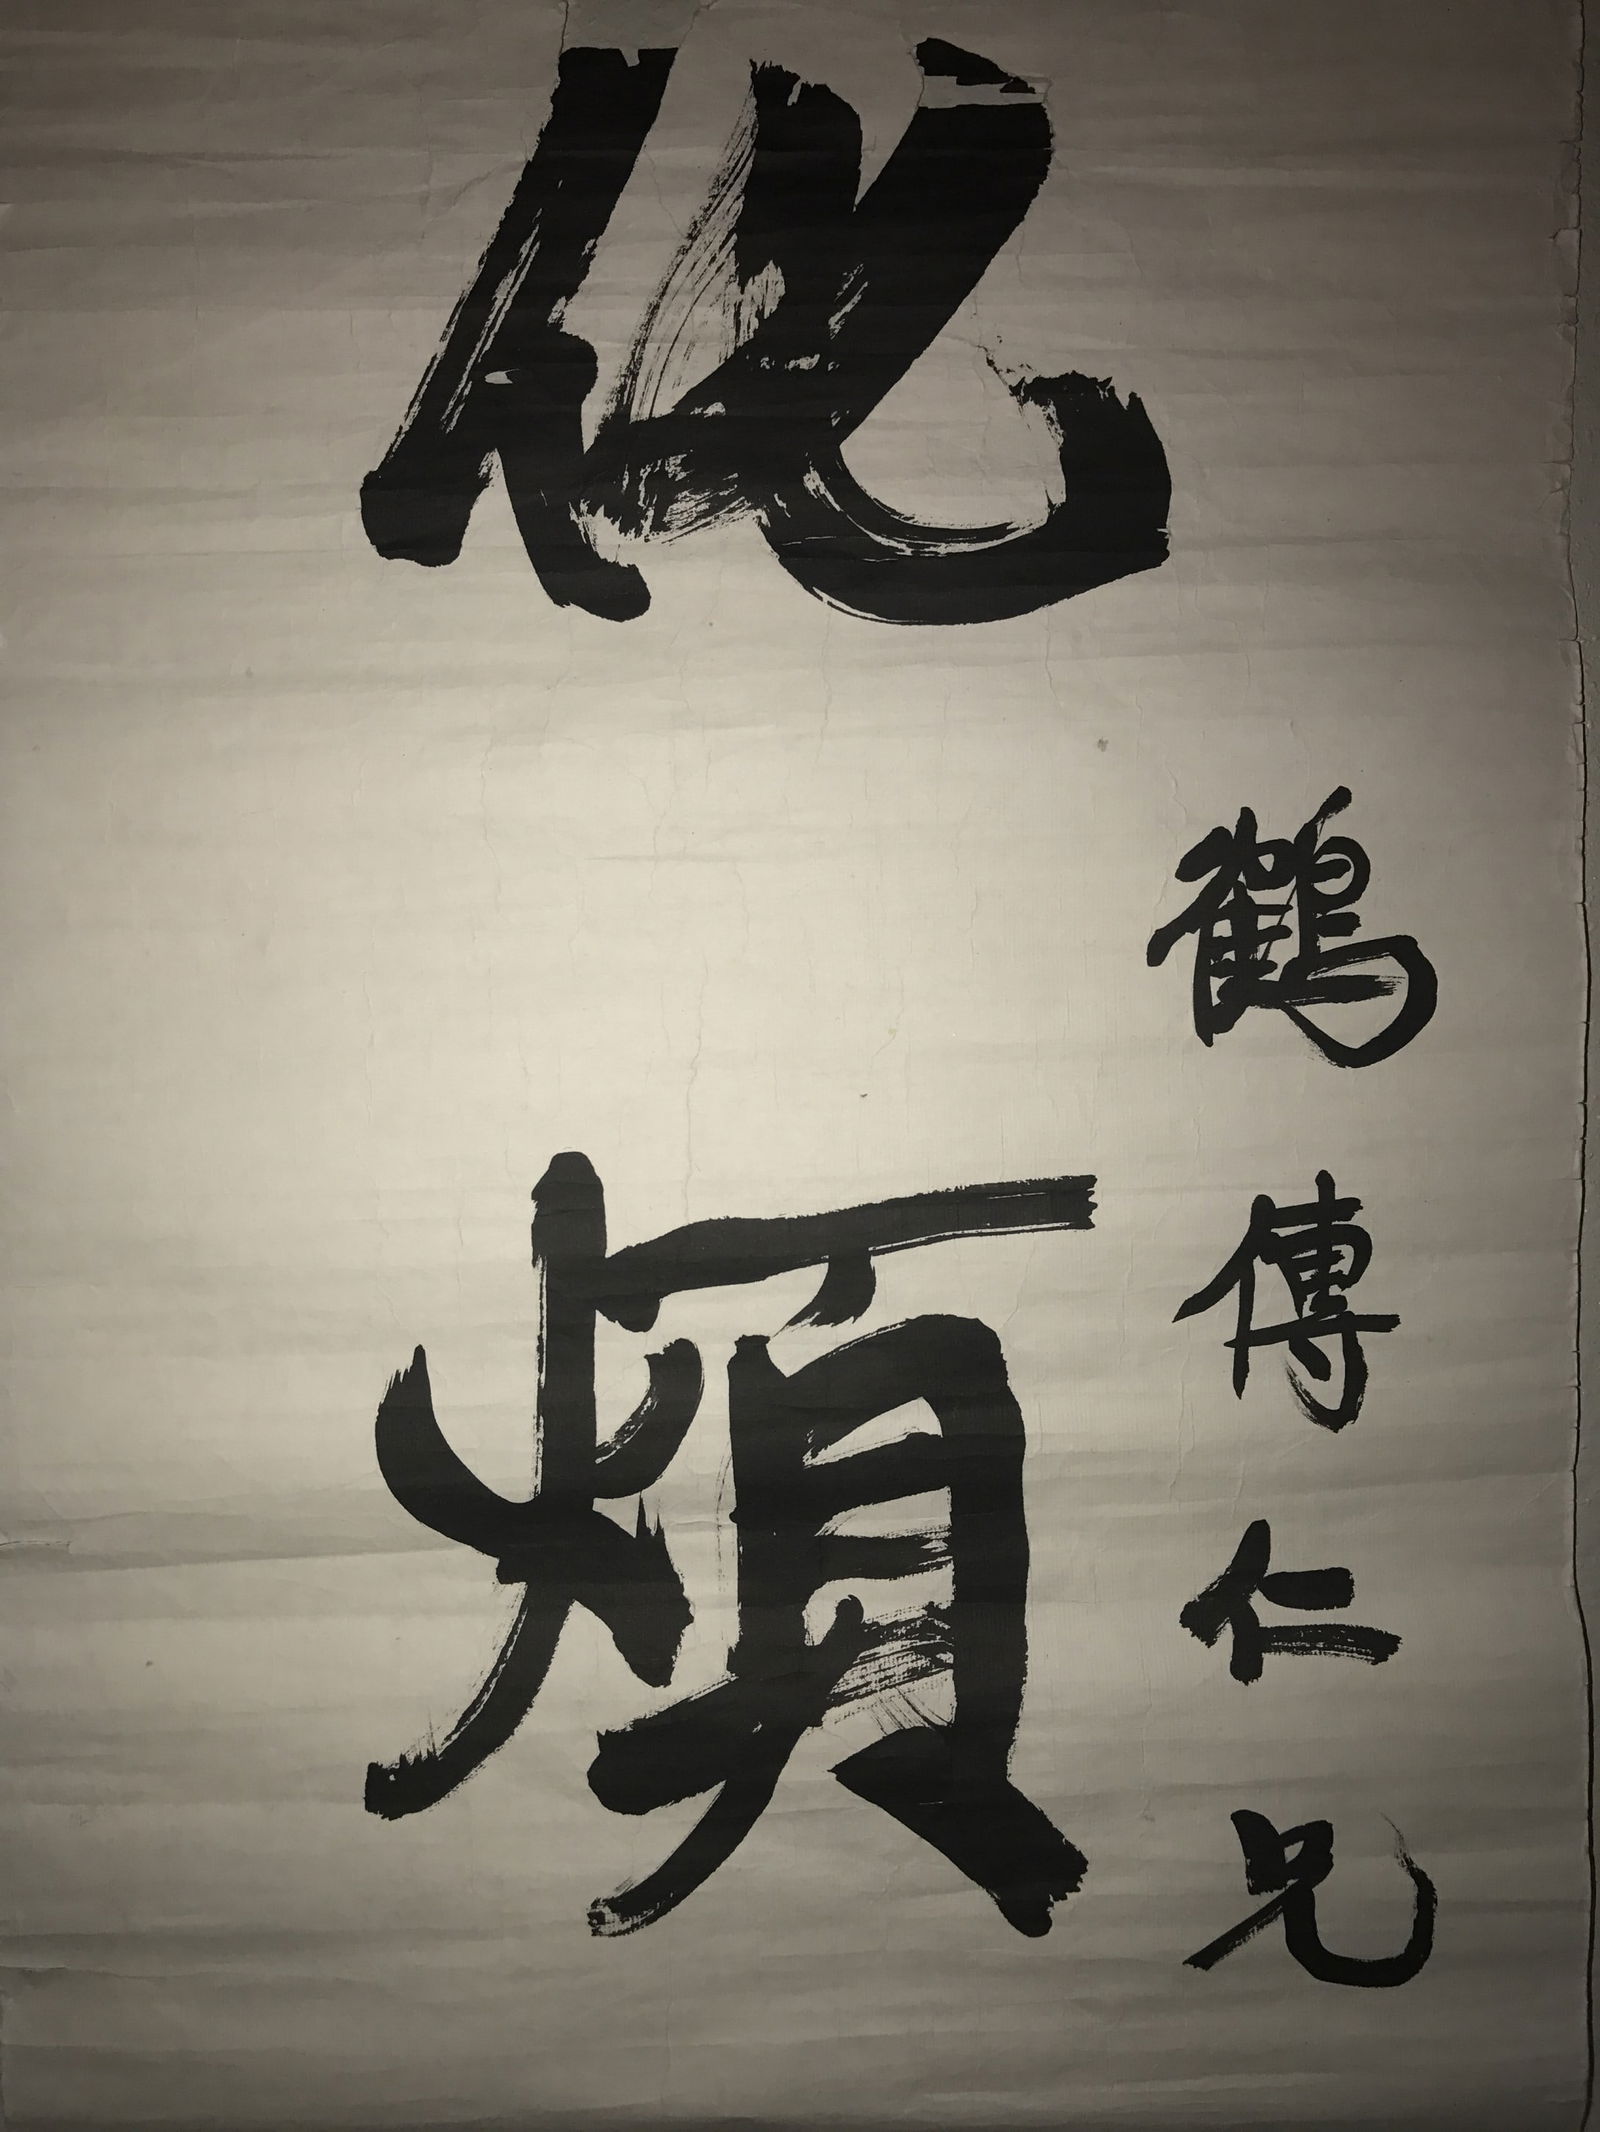 鶴傳仁兄
化煩